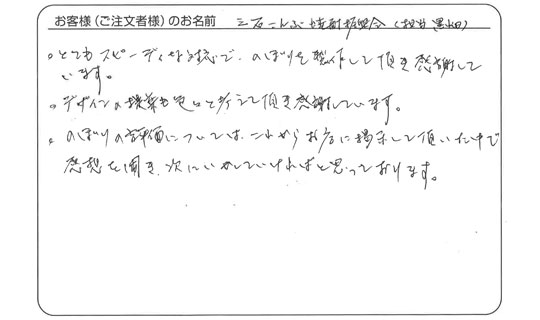 お客様(ご注文者様)のお名前 三石こんぶ 振興会(担当 黒田)
。とてもスピーディな対応で、のぼりを製作して頂き感謝して
います。
。デザインの提案も色いと考えて頂き感謝しています。
。のぼりの評価については、これからお店に掲示して頂いた中で
感想を聞き、次にいかしていければと思っております。